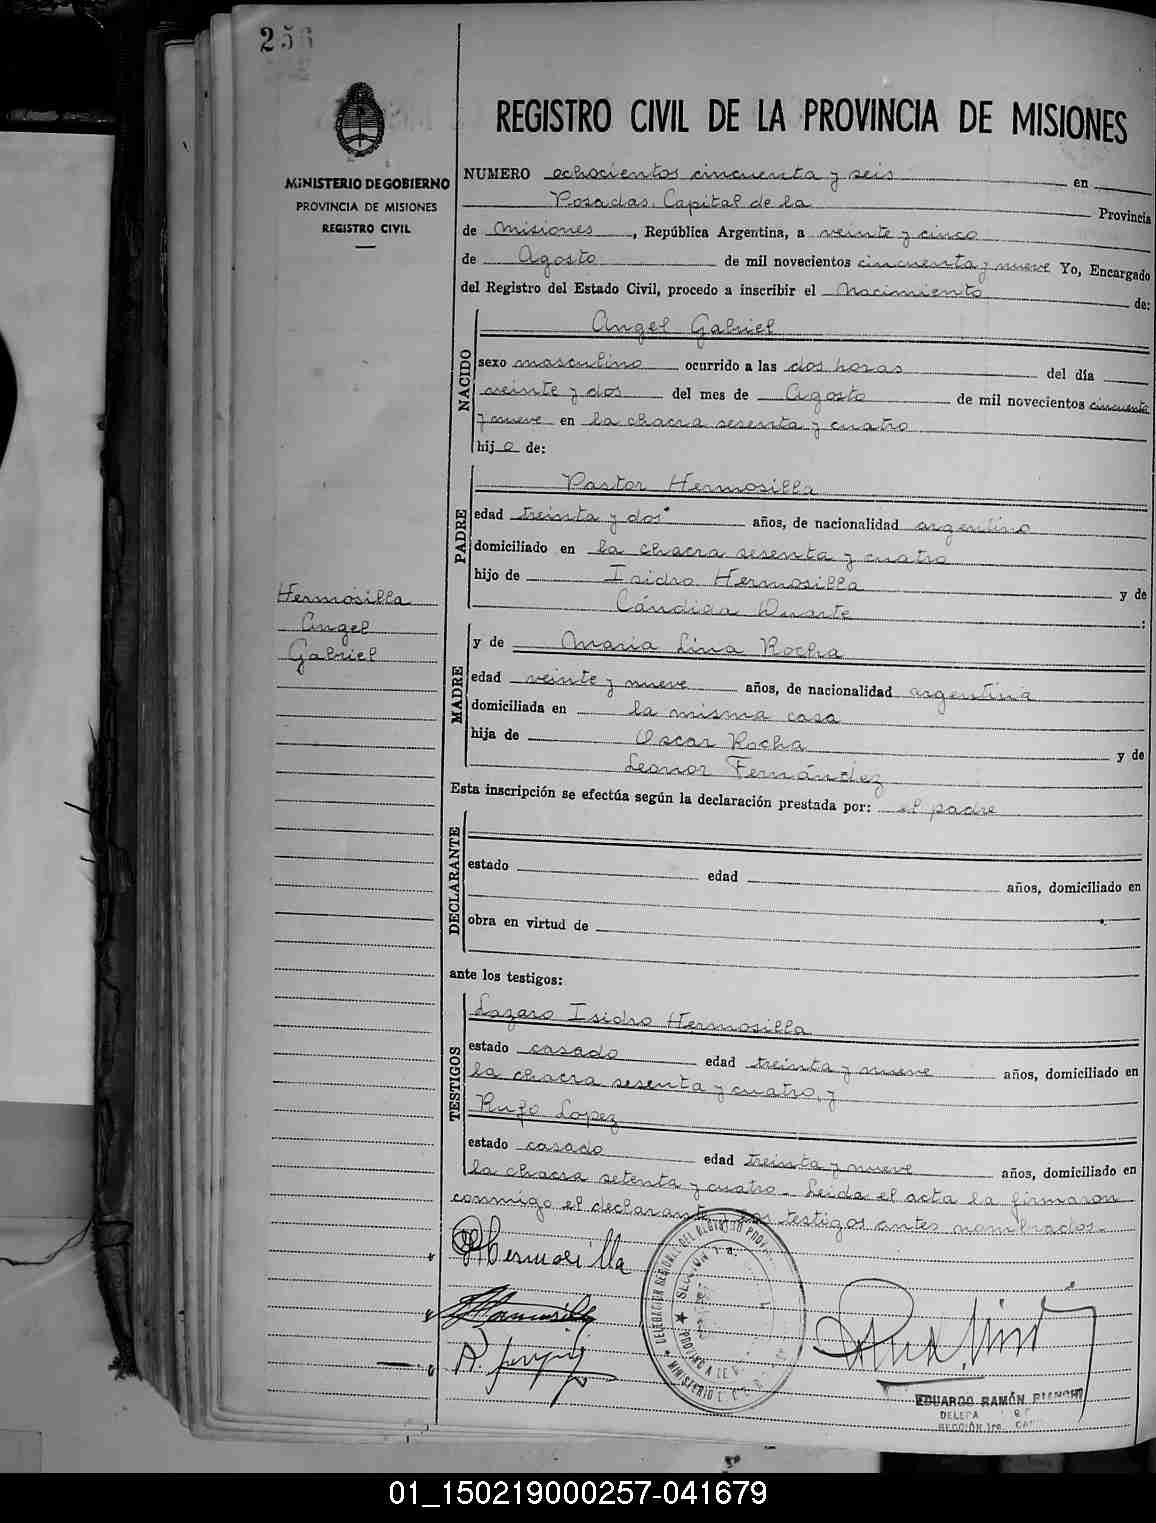 256
REGISTRO CIVIL DE LA PROVINCIA DE MISIONES
MINISTERIO DE GOBIERNO
PROVINCIA DE MISIONES
REGISTRO CIVIL
NUMERO ochocientos cincuenta y seis en
Posadas. Capital de la Provincia
de Misiones, República Argentina, a veinte y cinco
de Agosto de mil novecientos cincuenta y nueve Yo, Encargado
del Registro del Estado Civil, procedo a inscribir el Nacimiento de:
NACIDO
Angel Gabriel
sexo masculino ocurrido a las dos horas del día
veinte y dos del mes de Agosto de mil novecientos cincuenta
y nueve en la chacra sesenta y cuatro
hijo de:
PADRE
Pastor Hermosilla
edad treinta y dos años, de nacionalidad argentino
domiciliado en la chacra sesenta y cuatro
hijo de Isidro Hermosilla y de
Cándida Duarte :
Hermosilla
Angel
Gabriel
MADRE
y de Maria Lina Rocha
edad veinte y nueve años, de nacionalidad argentina
domiciliada en la misma casa
hija de Oscar Rocha y de
Leonor Fernández
Esta inscripción se efectúa según la declaración prestada por: el padre
DECLARANTE
estado edad años, domiciliado en
obra en virtud de
ante los testigos:
TESTIGOS
Lazaro Isidro Hermosilla
estado casado edad treinta y nueve años, domiciliado en
la chacra sesenta y cuatro, y
Rufo Lopez
estado casado edad treinta y nueve años, domiciliado en
la chacra setenta y cuatro. Leida el acta la firmaron
conmigo el declarante y los testigos antes nombrados.
Hermosilla
DELEGACION REGIONAL DEL REGISTRO
SECCION 1a.
MINISTERIO
EDUARDO RAMÓN BIANCHI
SECCIÓN 1ra.
01_150219000257-041679